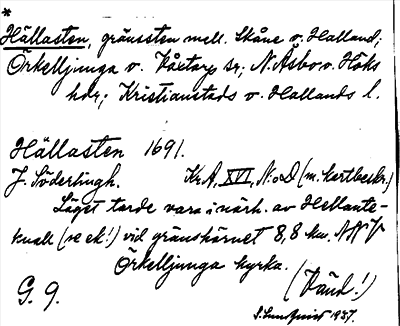 *
Hällasten, gränssten mell. Skåne o. Halland;
Örkelljunga o. Våxtorps sr; N. Åsbo o. Höks
hdr; Kristianstads o. Hallands l.
Hällasten 1691.
J. Söderlingh. Kr.A, XVI, N:o D (m. kartbeskr.)
Läget torde vara i närh. av Hellante-
kvall (se ek!) vid gränshörnet 8,8 km. NNV
Örkelljunga kyrka. (Vänd!)
G. 9.
1937.